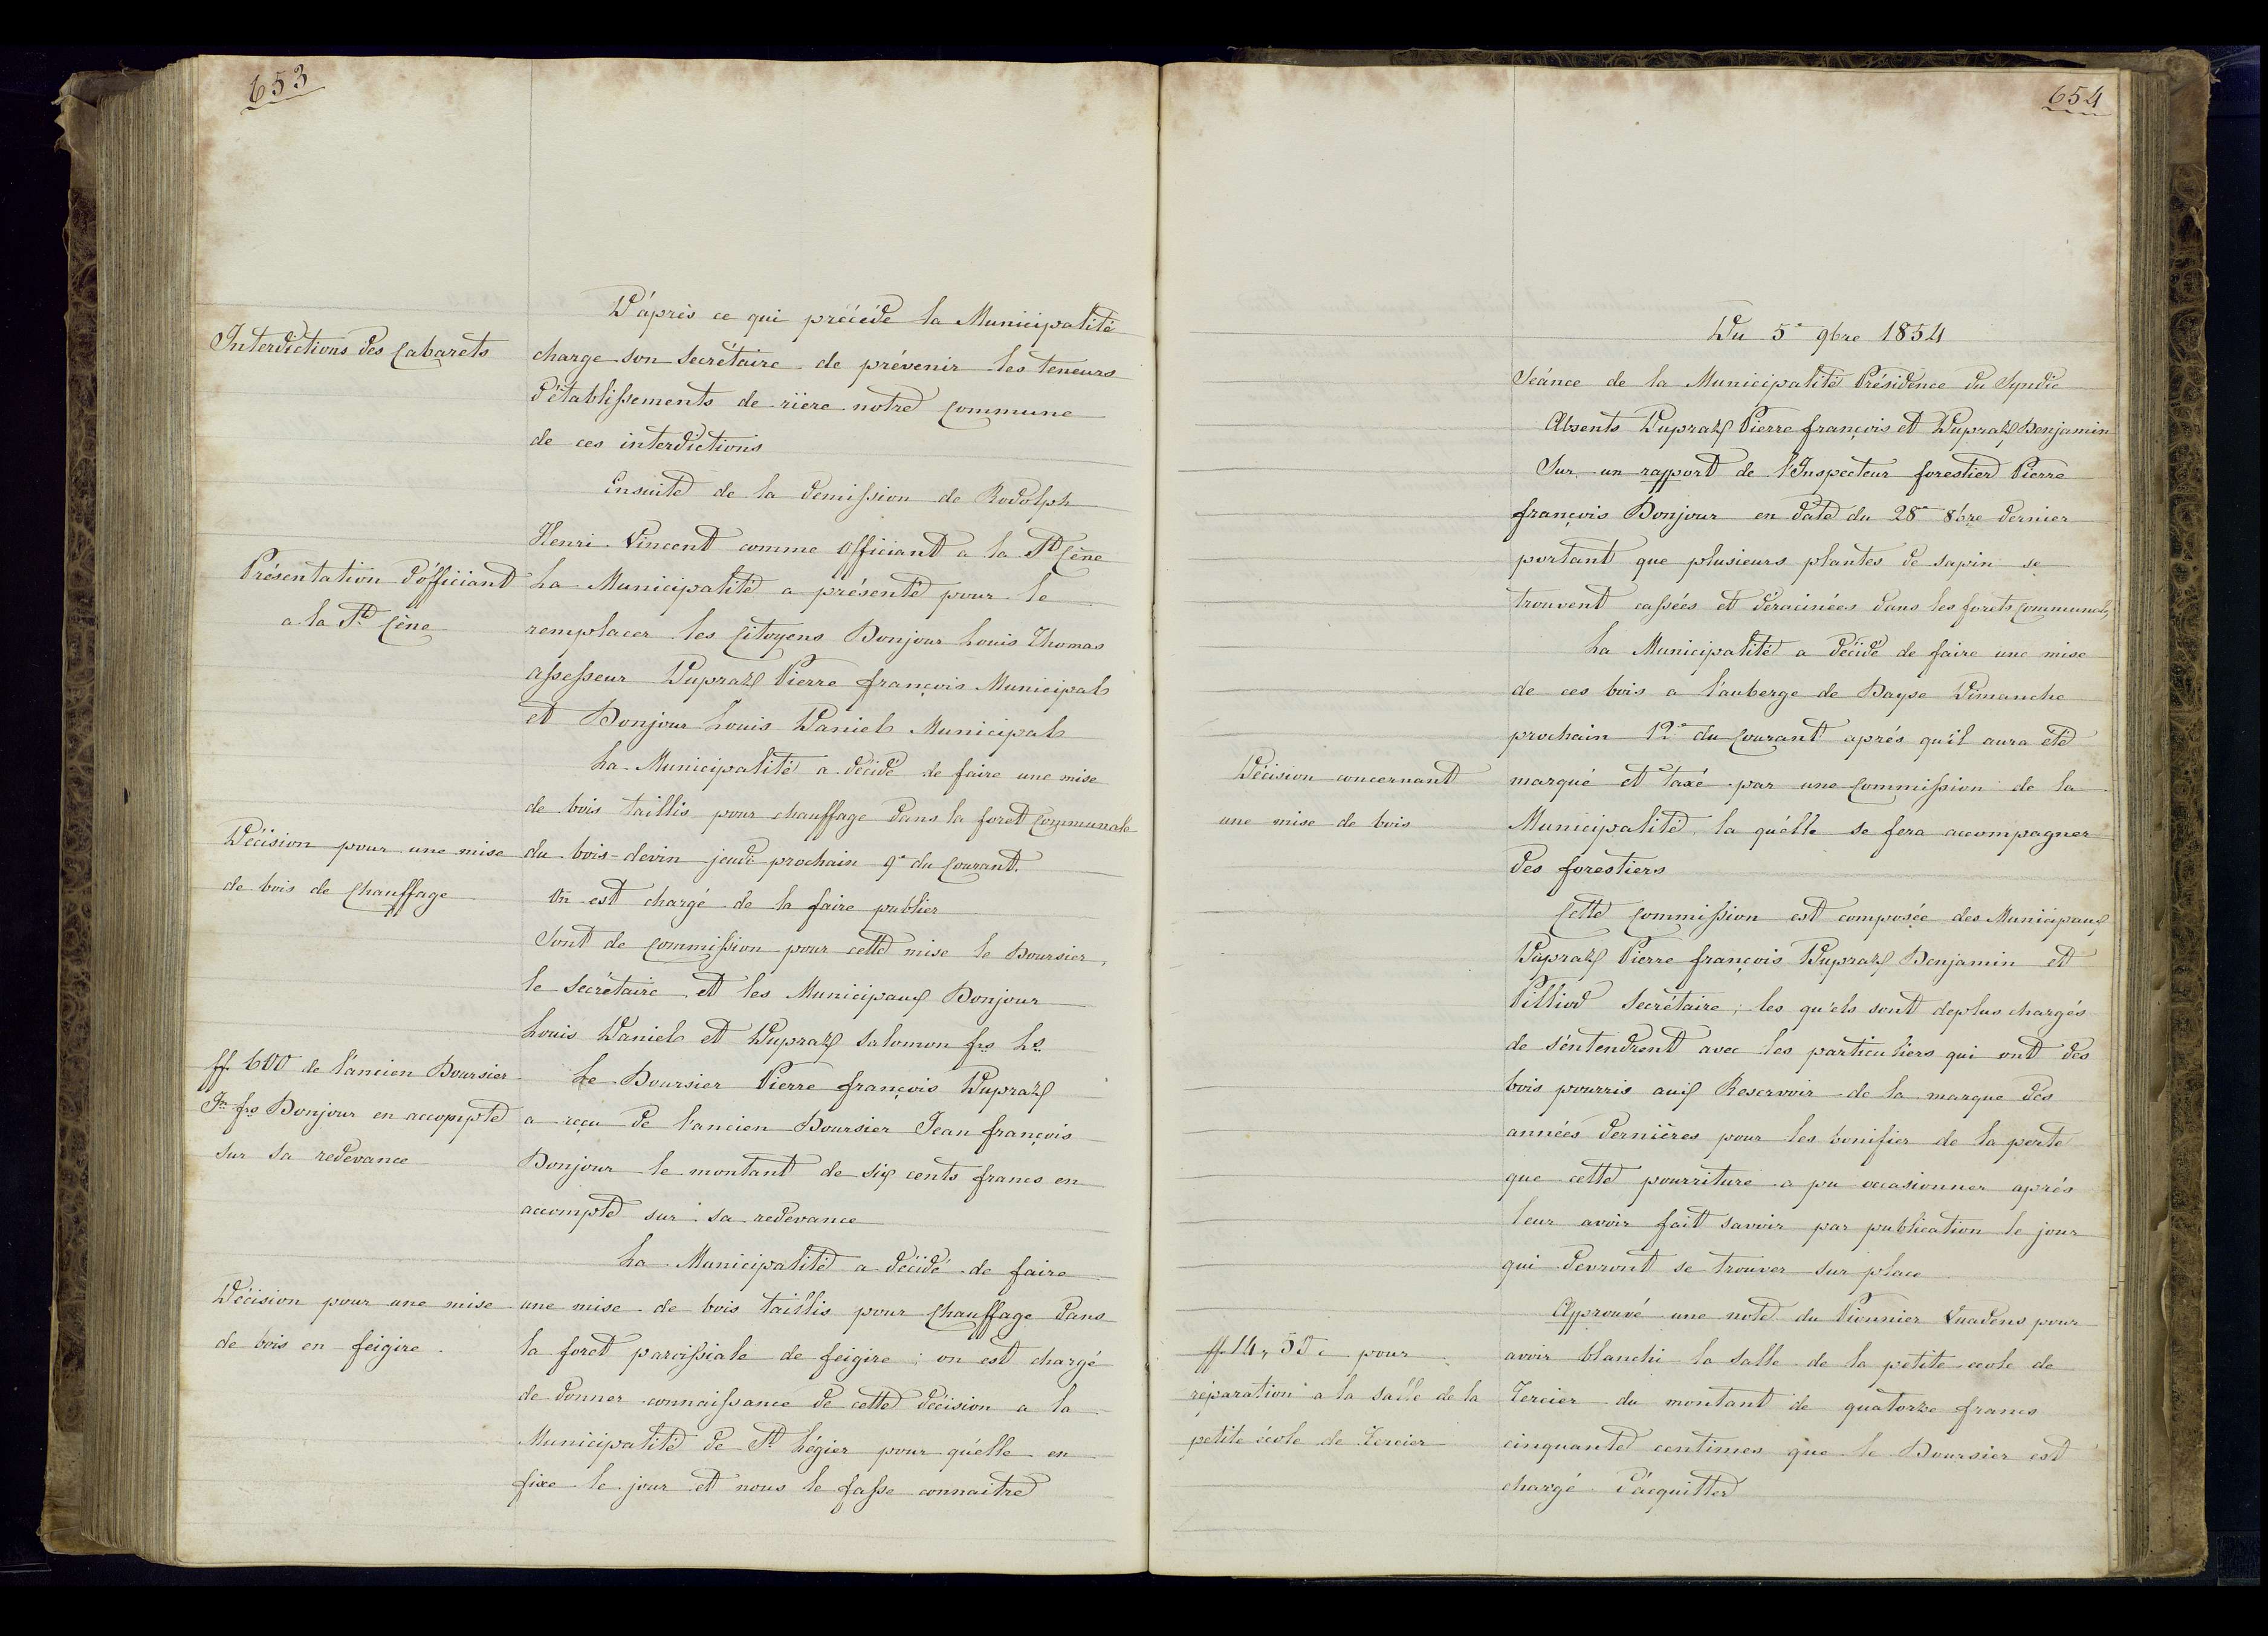 653
D'áprès ce qui précéde la Municipalité
Interdictions des Cabarets
charge son Secrétaire de prévenir les teneurs
d'établissements de rière notre Commune
de ces interdictions
Ensuite de la demission de Rodolph
Henri Vincent comme Officiant a la Ste Cène
Présentation d'officiant
a la Ste Cène
La Municipalité a présenté pour le
remplacer les Citoyens Bonjour Louis Thomas
assesseur Dupraz Pierre françois Municipal
et Bonjour Louis Daniel Municipal
La Municipalité a décidé de faire une mise
de bois taillis pour chauffage dans la foret Communale
Décision pour une mise
de bois de Chauffage
du bois-devin jeudi prochain 9e du Courant.
On est chargé de la faire publier
Sont de Commission pour cette mise le Boursier,
le Secrétaire et les Municipaux Bonjour
Louis Daniel et Dupraz Salomon frs Ls
ff. 600 de l'ancien Boursier
Jn frs Bonjour en accompte
sur sa redevance
Le Boursier Pierre françois Dupraz
a reçu de l'ancien Boursier Jean françois
Bonjour le montant de six cents francs en
accompte sur sa redevance
La Municipalité a décidé de faire
Décision pour une mise
de bois en feigire.
une mise de bois taillis pour Chauffage dans
la foret paroissiale de feigire; on est chargé
de donner connaissance de cette décision a la
Municipalité de St Légier pour qu'élle en
fixe le jour et nous le fasse connaitre
654
Du 5e 9bre 1854
Seánce de la Municipalité Présidence du Syndic
Absents Dupraz Pierre françois et Dupraz Benjamin
Sur un rapport de l'Inspecteur forestier Pierre
françois Bonjour en date du 28e 8bre dernier
portant que plusieurs plantes de sapin se
trouvent cassées et déracinées dans les forets Communales,
La Municipalité a décidé de faire une mise
de ces bois a l'auberge de Bayse Dimanche
prochain 12e du Courant aprés qu'il aura été
Décision concernant
une mise de bois
marqué et taxé par une Commission de la
Municipalité, la qu'élle se fera accompagner
des forestiers
Cette Commission est composée des Municipaux
Dupraz Pierre françois Dupraz Benjamin et
Pilliod Secrétaire; les qu'els sont deplus chargés
de s'éntendrent avec les particuliers qui ont des
bois pourris aux Reservoir de la marque des
années dernières pour les bonifier de la perte
que cette pourriture a pu occasionner aprés
leur avoir fait savoir par publication le jour
qui devront se trouver sur place
Approuvé une note du Pionnier Vuadens pour
ff. 14, 50 c pour
réparation a la salle de la
petite école de Tercier
avoir blanchi la salle de la petite école de
Tercier du montant de quatorze francs
cinquante centimes que le Boursier est
chargé d'ácquitter